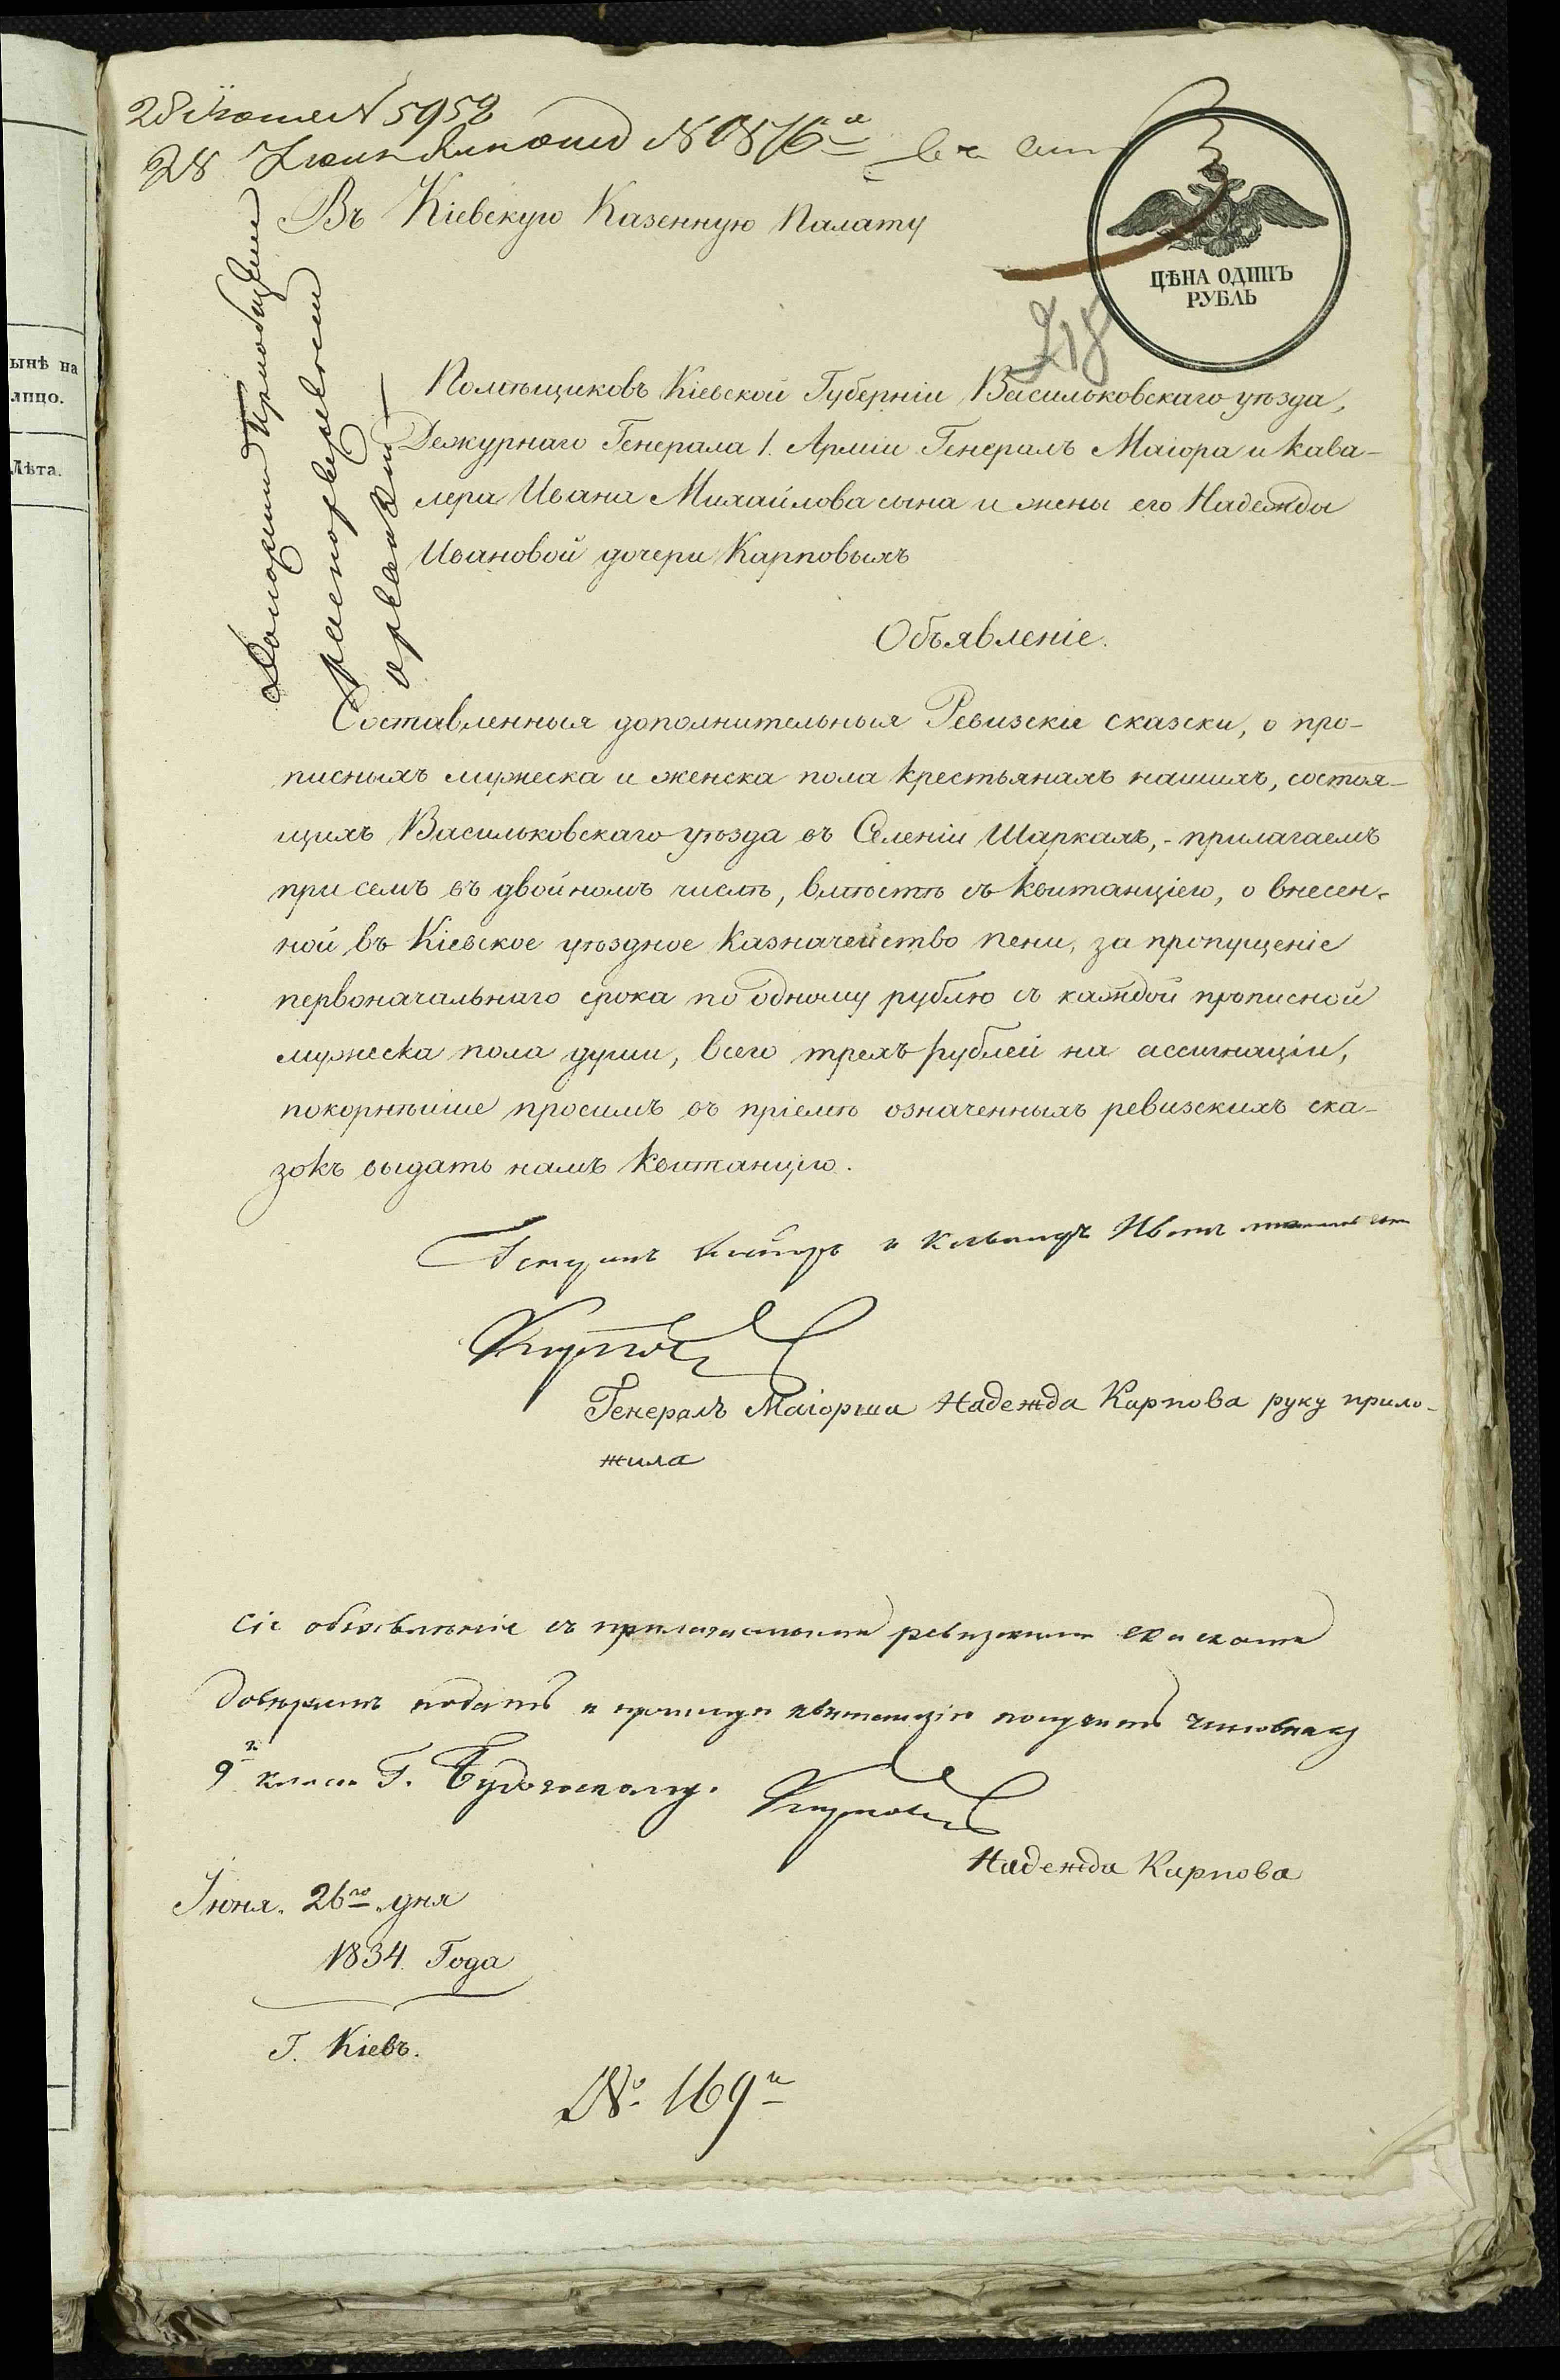 28 Іюня N 5952
28 Іюня N 1876
Въ Кіевскую Казенную Палату
ЦѢНА ОДИНЪ
РУБЛЬ
218
Помѣщиковъ Кіевской Губерніи, Васильковскаго уѣзда,
Дежурнаго Генерала 1. Арміи Генералъ Маіора и Кава-
лера Ивана Михайлова сына и жены его Надежды
Ивановой дочери Карповыхъ
Объявленіе.
Составленныя дополнительныя Ревизскіе сказски, о про-
писныхъ мужеска и женска пола крестьянахъ нашихъ, состоя-
щихъ Васильковскаго уѣзда въ Селеніи Шаркахъ,- прилагаемъ
при семъ въ двойномъ числѣ, вмѣстѣ съ квитанціею, о внесен-
ной въ Кіевское уѣздное Казначейство пени, за пропущеніе
первоначальнаго срока по одному рублю съ каждой прописной
мужеска пола души, всего трехъ рублей на ассигнаціи,
покорнѣише просимъ въ пріемѣ означенныхъ ревизскихъ ска-
зокъ выдать намъ Квитанцію.
Генералъ Маіоръ и Кавалеръ Иванъ сынъ
Карповъ
Генералъ Маіорша Надежда Карпова руку прило-
жила
Сіе объявленіе съ ревизскими сказками
довѣряемъ подать и квитанцію получить чиновнику
9 класса Г.
Карповъ
Надежда Карпова
Іюня. 26го дня
1834. Года
Г. Кіевъ.
№ 169
ынѣ на
лицо.
Лѣта.